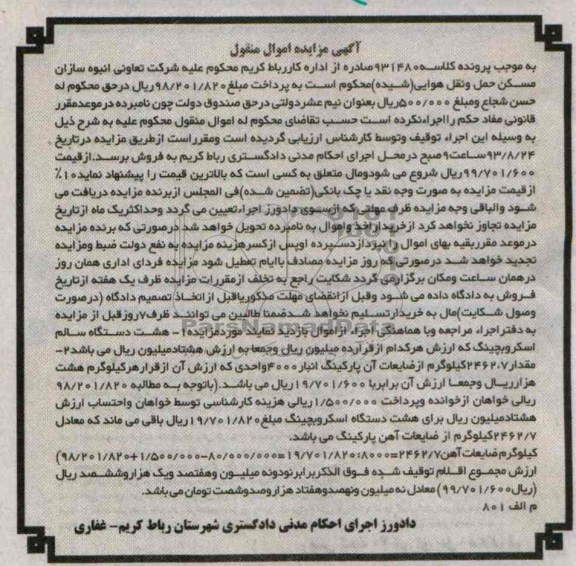 آگهی مزایده اموال منقول
به موجب پرونده کلاسه ۹۳۱۴۸۰ صادره از اداره کار رباط کریم محکوم علیه شرکت تعاونی انبوه سازان
مسکن حمل ونقل هوایی(شیده)محکوم است به پرداخت مبلغ ۹۸/۲۰۱/۸۲۰ریال درحق محکوم له
حسن شجاع ومبلغ ۵۰۰/۰۰۰ریال بعنوان نیم عشردولتی درحق صندوق دولت چون نامبرده درموعدمقرر
قانونی مفاد حکم رااجراءنکرده است حسب تقاضای محکوم له اموال منقول محکوم علیه به شرح ذیل
به وسیله این اجراء توقیف وتوسط کارشناس ارزیابی گردیده است ومقرراست ازطریق مزایده درتاریخ
۹۳/۸/۲۴ساعت۹صبح درمحل اجرای احکام مدنی دادگستری رباط کریم به فروش برسد.ازقیمت
۹۹/۷۰۱/۶۰۰ریال شروع می شودومال متعلق به کسی است که بالاترین قیمت را پیشنهاد نماید۱۰٪
ازقیمت مزایده به صورت وجه نقد یا چک بانکی(تضمین شده)فی المجلس ازبرنده مزایده دریافت می
شود والباقی وجه مزایده ظرف مهلتی که ازسوی دادورز اجراءتعیین می گردد وحداکثریک ماه ازتاریخ
مزایده تجاوز نخواهد کرد ازخریداراخذ واموال به نامبرده تحویل خواهد شد درصورتی که برنده مزایده
درموعد مقرربقیه بهای اموال را نپردازدسپرده اوپس ازکسرهزینه مزایده به نفع دولت ضبط ومزایده
تجدید خواهد شد درصورتی که روز مزایده مصادف باایام تعطیل شود مزایده فردای اداری همان روز
درهمان ساعت ومکان برگزارمی گردد شکایت راجع به تخلف ازمقررات مزایده ظرف یک هفته ازتاریخ
فروش به دادگاه داده می شود وقبل ازانقضای مهلت مذکوریاقبل ازاتخاذ تصمیم دادگاه (درصورت
وصول شکایت)مال به خریدارتسلیم نخواهد شدضمنا طالبین می توانند ظرف۷روزقبل از مزایده
به دفتراجراء مراجعه وبا هماهنگی اجراء ازاموال بازدید نمایند موردمزایده۱- هشت دستگاه سالم
اسکروبچینگ که ارزش هرکدام ازقرارده میلیون ریال وجمعا به ارزش هشتادمیلیون ریال می باشد۲-
مقدار۲۴۶۲.۷کیلوگرم ازضایعات آن پارکینگ انبار ۴۰۰۰واحدی که ارزش آن ازقرارهرکیلوگرم هشت
هزارریال وجمعا ارزش آن برابربا ۱۹/۷۰۱/۶۰۰ریال می باشد.(باتوجه به مطالبه ۹۸/۲۰۱/۸۲۰
ریالی خواهان ازخوانده وپرداخت ۱/۵۰۰/۰۰۰ریالی هزینه کارشناسی توسط خواهان واحتساب ارزش
هشتادمیلیون ریال برای هشت دستگاه اسکروبچینگ مبلغ۱۹/۷۰۱/۸۲۰ریال باقی می ماند که معادل
۲۴۶۲/۷کیلوگرم از ضایعات آهن پارکینگ می باشد.
کیلوگرم ضایعات آهن۲۴۶۲/۷=۸۰۰۰:۱۹/۷۰۱/۸۲۰=۸۰/۰۰۰/۰۰۰-۹۸/۲۰۱/۸۲۰+۱/۵۰۰/۰۰۰)
ارزش مجموع اقلام توقیف شده فوق الذکربرابرنودونه میلیون وهفتصد ویک هزاروششصد ریال
(ریال۹۹/۷۰۱/۶۰۰) معادل نه میلیون ونهصدوهفتاد هزاروصدوشصت تومان می باشد.
م الف ۸۰۱
دادورز اجرای احکام مدنی دادگستری شهرستان رباط کریم- غفاری